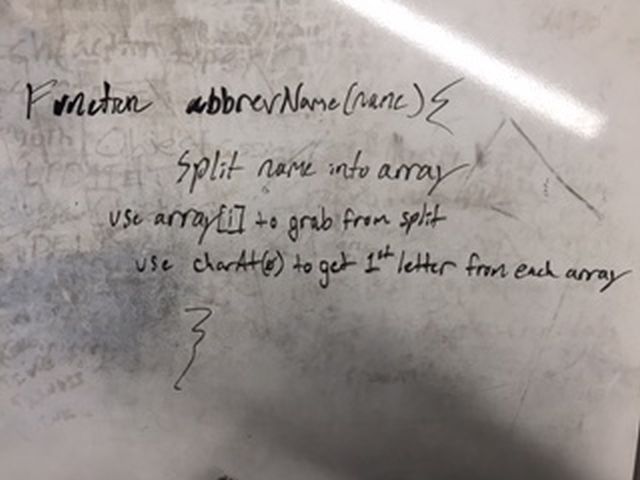 Function abbrevName(name){
Split name into array
use array[i] to grab from split
use charAt(0) to get 1st letter from each array
}